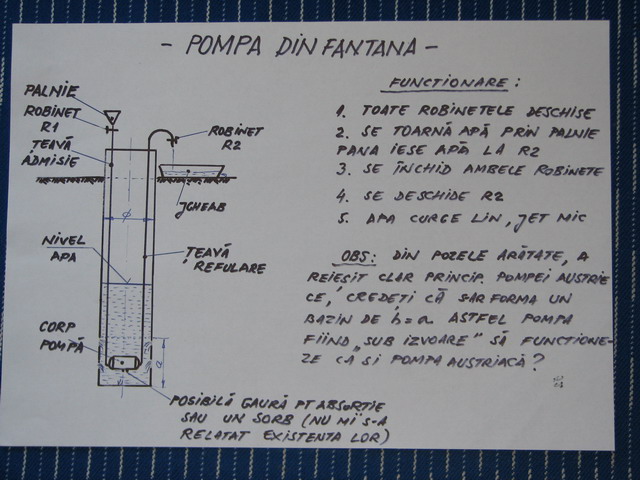 - POMPA DIN FANTANA -
PALNIE
ROBINET
R1
TEAVĂ
ADMISIE
ROBINET
R2
JGHEAB
Φ
NIVEL
APA
ȚEAVĂ
REFULARE
CORP
POMPĂ
a
POSIBILĂ GAURĂ PT ABSORTIE
SAU UN SORB (NU MI S-A
RELATAT EXISTENTA LOR)
FUNCTIONARE :
1. TOATE ROBINETELE DESCHISE
2. SE TOARNĂ APĂ PRIN PALNIE
PANA IESE APĂ LA R2
3. SE ÎNCHID AMBELE ROBINETE
4. SE DESCHIDE R2
5. APA CURGE LIN, JET MIC
OBS: DIN POZELE ARĂTATE, A
REIEȘIT CLAR PRINCIP. POMPEI AUSTRIE
CE, CREDEȚI CĂ SAR FORMA UN
BAZIN DE h=a ASTFEL POMPA
FIIND „SUB IZVOARE" SĂ FUNCTIONE-
ZE CA SI POMPA AUSTRIACĂ?